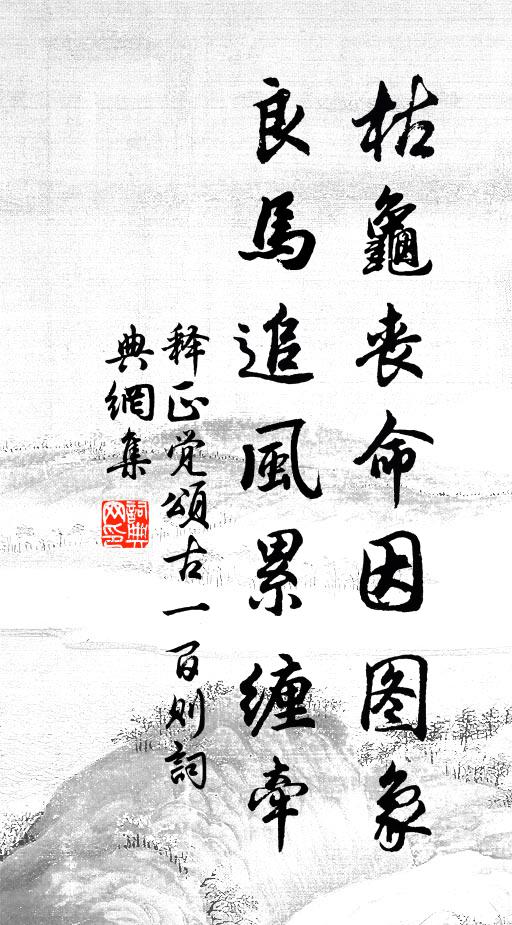 枯龜喪命因图象
良馬追風累纏牽
释正觉頌古一百则詞
典網集
詞典网印